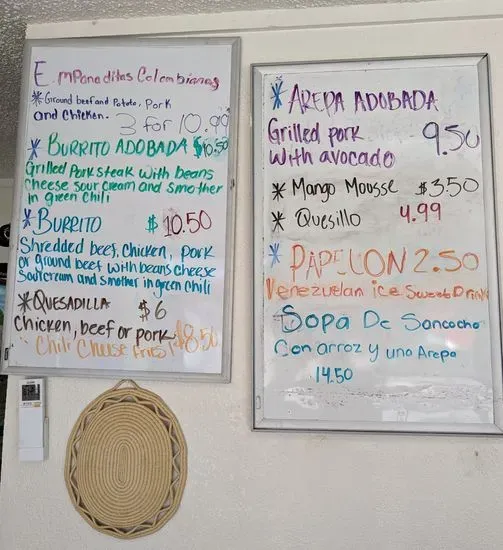 EmPanaditas Colombianas
*Ground beef and Potato, Pork
and Chicken.
3 for 10.90
* BURRITO ADOBADA $10.50
Grilled Pork steak with beans
Cheese sour cream and smother
in green chili
* BURRITO $10.50
Shredded beef, chicken, pork
or ground beef with beans cheese
Sour cream and smother in green chili
*QUESADILLA $6
Chicken, beef or pork
Chili Cheese Fries! $8.50
* AREPA ADOBADA
Grilled pork 9.50
with avocado
* Mango Mousse $3.50
* Quesillo 4.99
* PAPELON 2.50
Venezuelan ice Sweet Drink
Sopa De Sancocho
Con arroz y una Arepa
14.50